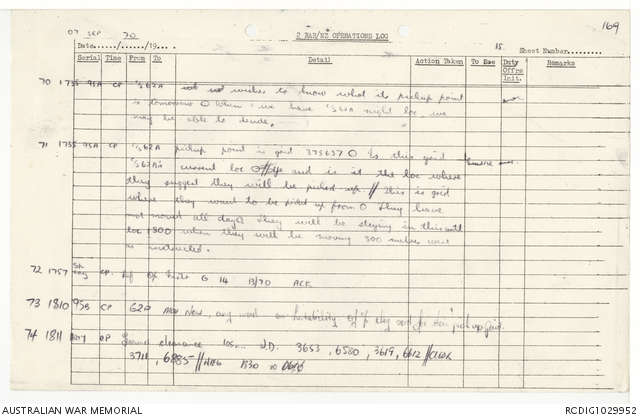 169
07 SEP 70
2 RAR/NZ OPERATIONS LOG
Date....../....../19... Sheet Number.........
15
Serial Time From To Action Taken To See Duty Offrs Init. Remarks
70 1735 95A CP S62A wishes to know what its pickup point
is tomorrow O when we have S62A night loc we
may be able to decide.
71 1755 95A CP 62A pickup point is grid 375637 O Is this grid
S62A's current loc and is it the loc where
they suggest they will be picked up // this is grid
where they want to be picked up from O They have
not moved all day O they will be staying in this
loc 1800 when they will be moving 300 metres west
72 1757 CP G 14 13/70 ACK
73 1810 95B CP 62A any word on for pickup grid.
74 1811 Arty CP clearance loc... J.D. 3653, 6580, 3619, 6612 //
3711, 6885 // 1930 to
AUSTRALIAN WAR MEMORIAL
RCDIG1029952